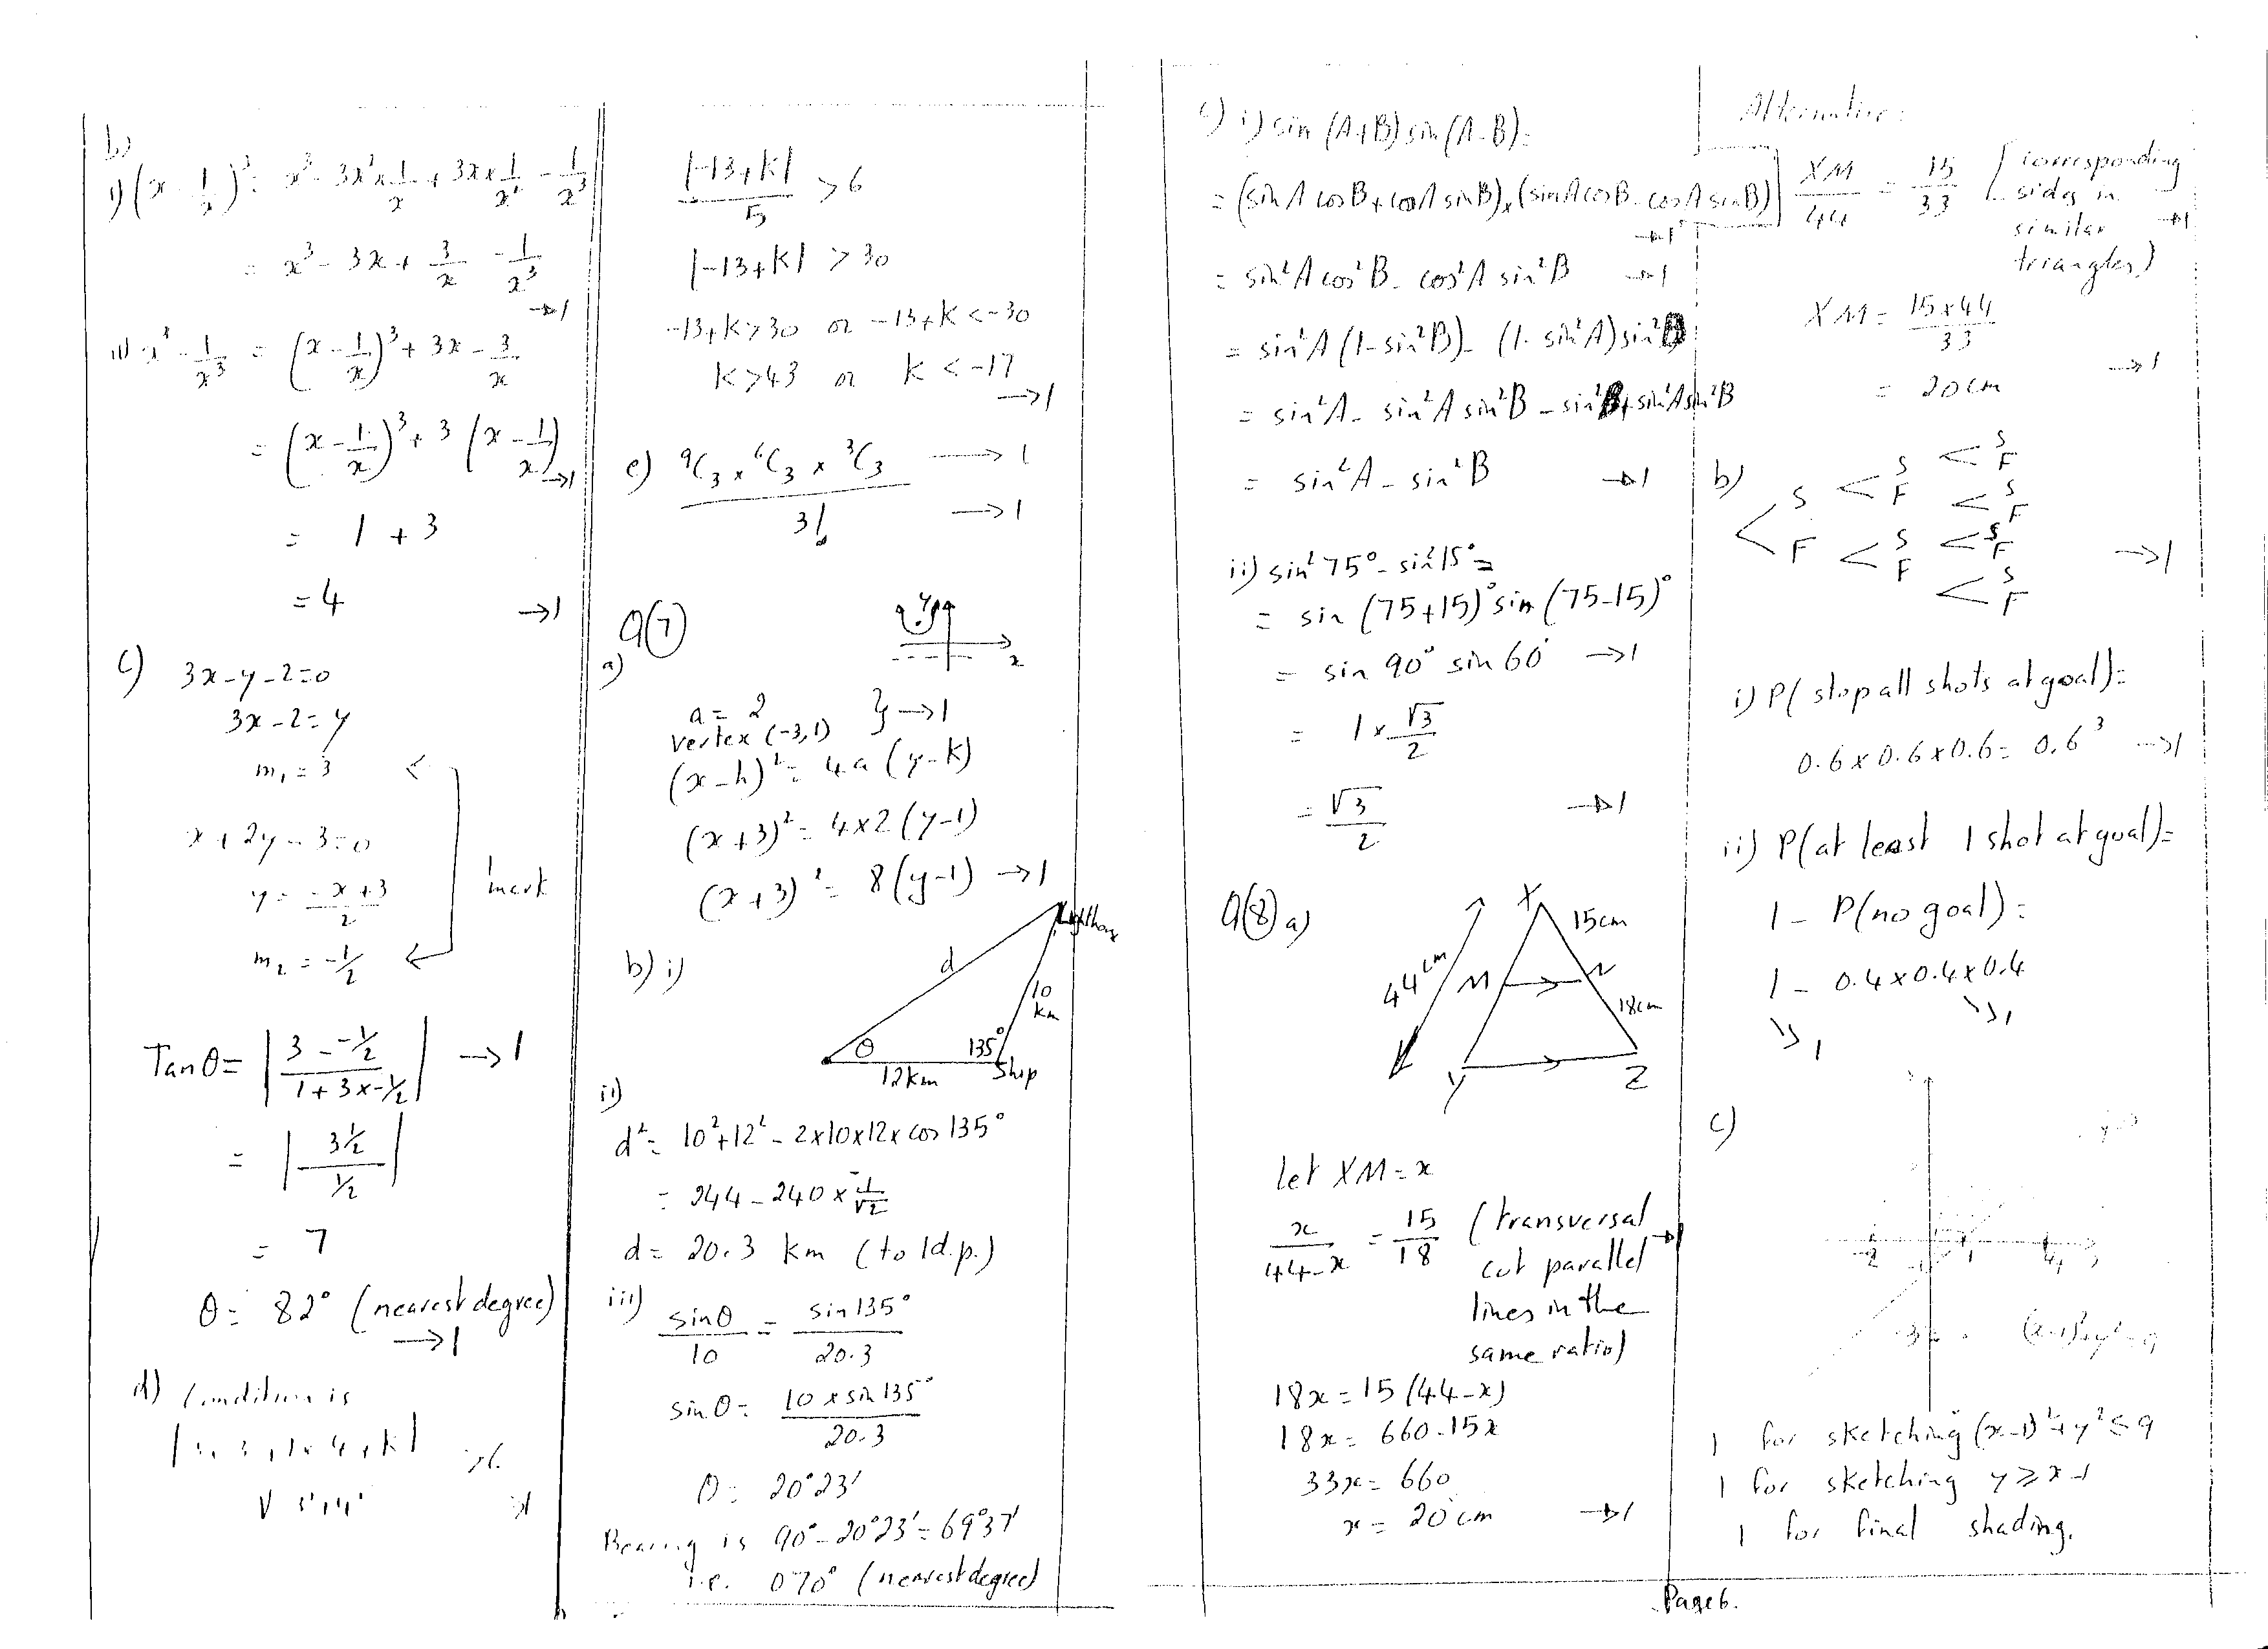 b)
i) (x - 1/x)³ = x³ - 3x² × 1/x + 3x × 1/x² - 1/x³
= x³ - 3x + 3/x - 1/x³
→1
ii) x³ - 1/x³ = (x - 1/x)³ + 3x - 3/x
= (x - 1/x)³ + 3 (x - 1/x) →1
= 1 + 3
= 4 →1
c) 3x - y - 2 = 0
3x - 2 = y
m₁ = 3
x + 2y - 3 = 0
y = (-x + 3)/2
1 mark
m₂ = -1/2
Tan θ = |(3 - -1/2)/(1 + 3x-1/2)| →1
= |(3 1/2)/(1/2)|
= 7
θ = 82° (nearest degree)
→1
d) Condition is
→1
|-13+k|/5 > 6
|-13+k| > 30
-13+k > 30 or -13+k < -30
k > 43 or k < -17
→1
e) (⁹C₃ × ⁶C₃ × ³C₃)/3! →1
→1
Q(7)
a)
y
x
a = 2
vertex (-3,1) } →1
(x-h)² = 4a (y-k)
(x+3)² = 4×2 (y-1)
(x+3)² = 8(y-1) →1
b) i)
Lighthouse
d
10 km
θ
135°
12km
Ship
ii)
d² = 10² + 12² - 2×10×12× cos 135°
= 244 - 240 × -1/√2
d = 20.3 km (to 1d.p.)
iii) sin θ/10 = sin 135°/20.3
sin θ = (10 × sin 135°)/20.3
θ = 20°23'
Bearing is 90° - 20°23' = 69°37'
i.e. 070° (nearest degree)
c) i) sin (A+B) sin (A-B) =
= (sin A cos B + cos A sin B) × (sin A cos B - cos A sin B)
→1
= sin²A cos²B - cos²A sin²B →1
= sin²A (1-sin²B) - (1-sin²A) sin²B
= sin²A - sin²A sin²B - sin²B + sin²A sin²B
= sin²A - sin²B →1
ii) sin²75° - sin²15° =
= sin (75+15)° sin (75-15)°
= sin 90° sin 60° →1
= 1 × √3/2
= √3/2 →1
Q(8) a)
X
15cm
44cm
M
N
18cm
Y
Z
Let XM = x
x/(44-x) = 15/18 (transversal →1
cut parallel
lines in the
same ratio)
18x = 15 (44-x)
18x = 660 - 15x
33x = 660
x = 20 cm →1
Alternative:
XM/44 = 15/33 (corresponding
sides in →1
similar
triangles)
XM = (15×44)/33
→1
= 20 cm
b)
S < S < S F
F < S F
F < S < S F
F < S F
→1
i) P( stop all shots at goal) =
0.6 × 0.6 × 0.6 = 0.6³ →1
ii) P(at least 1 shot at goal) =
1 - P(no goal) =
1 - 0.4×0.4×0.4
→1 →1
c)
-2
1
4
-3
(x-1)²+y²=9
1 for sketching (x-1)²+y² ≤ 9
1 for sketching y ≥ x-1
1 for final shading.
Page 6.